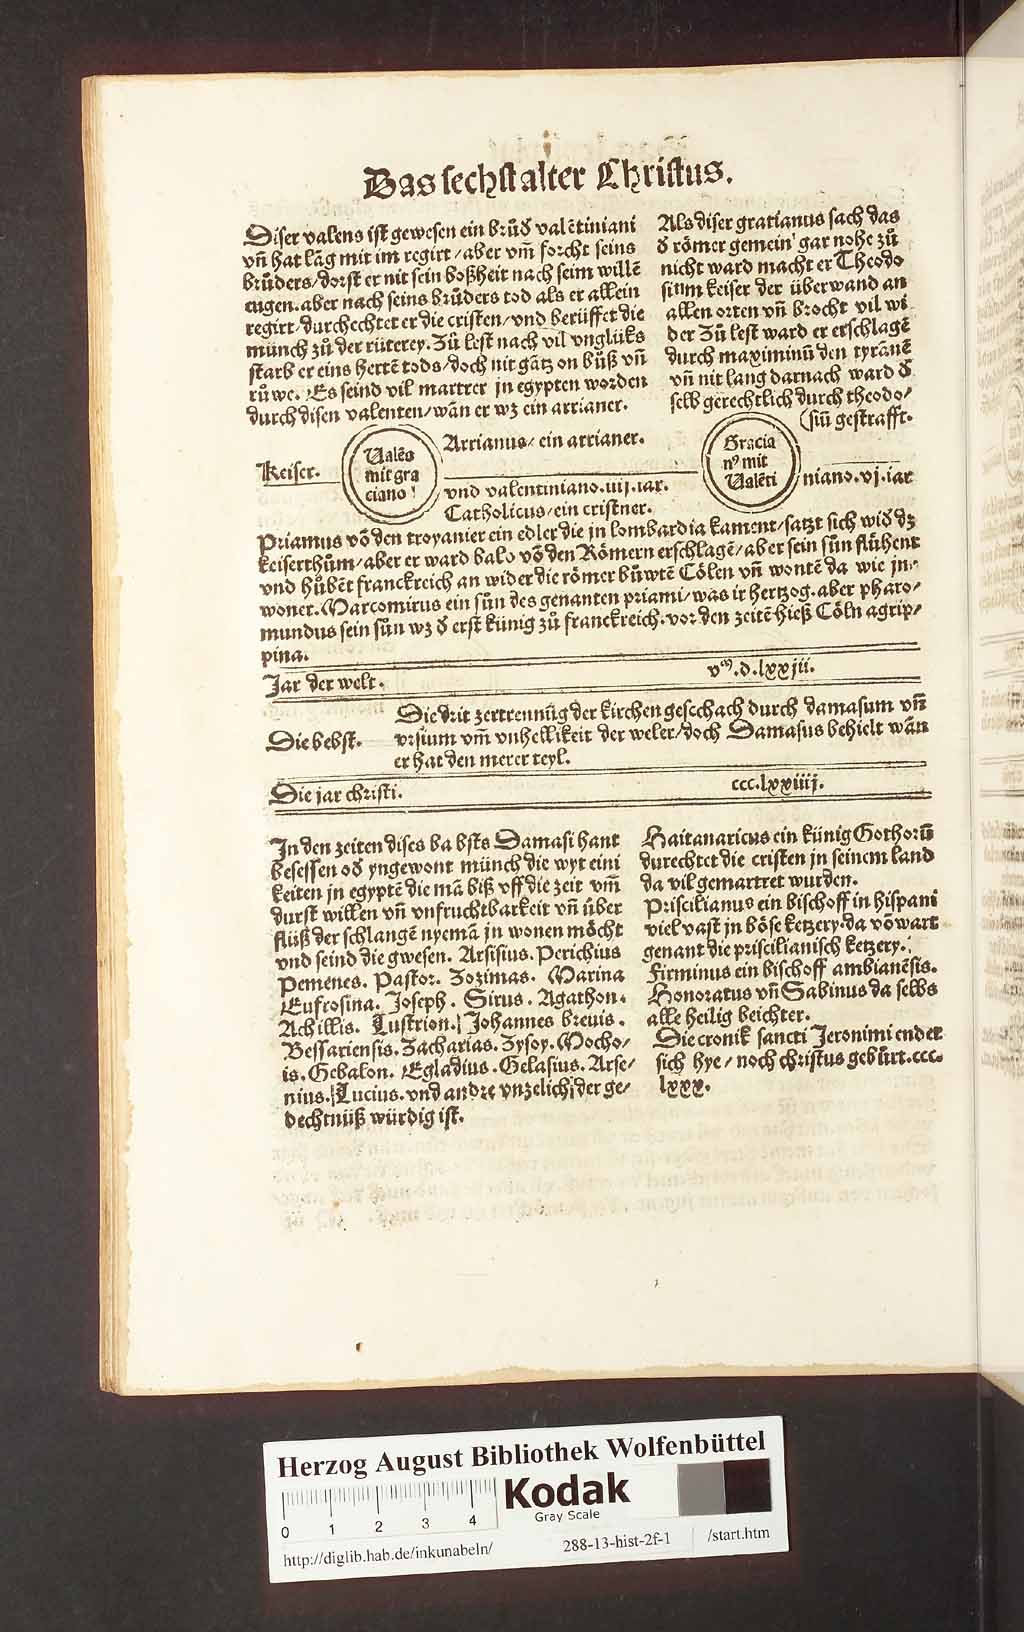 Das sechst alter Christus.
Diser valens ist gewesen ein brůd̕ valētiniani
vn̄ hat lāg mit im regirt / aber vm̄ forcht seins
brůders / dorst er nit sein boßheit nach seim willē
eugen. aber nach seins brůders tod als er allein
regirt / durchechtet er die cristen / vnd berüffet die
münch zů der rüterey. Zů lest nach vil vnglüks
starb er eins hertē tods / doch nit gātz on bůß vn̄
růwe. Es seind vil martrer jn egypten worden
durch disen valenten / wān er wz ein arrianer.
Als diser gratianus sach das
d̕ römer gemein gar nohe zů
nicht ward macht er Theodo
sium keiser der überwand an
allen orten vn̄ brocht vil wi
der Zů lest ward er erschlagē
durch maximinū den tyrānē
vn̄ nit lang darnach ward d̕
selb gerechtlich durch theodo /
(siū gestrafft.
Keiser.
Ualēs
mit gra
ciano
Arrianus / ein arrianer.
vnd valentiniano. iiij. iar.
Catholicus / ein cristner.
Gracia
nꝰ mit
Valēti
niano. vj. iar
Priamus vō den troyanier ein edler die jn lombardia kament / satzt sich wid̕ dz
keiserthům / aber er ward bald vō den Römern erschlagē / aber sein sün flühent
vnd hůbēt franckreich an wider die römer bůwtē Cölen vn̄ wontē da wie jn /
woner. Marcomirus ein sün des genanten priami / was ir hertzog. aber pharo /
mundus sein sün wz d̕ erst künig zů franckreich. vor den zeitē hieß Cöln agrip /
pina.
Jar der welt. vm. d. lxxiij.
Die bebst.
Die drit zertrennūg der kirchen geschach durch damasum vn̄
vrsium vm̄ vnhellikeit der weler / doch Damasus behielt wān
er hat den merer teyl.
Die jar christi. ccc. lxxiiij.
In den zeiten dises babsts Damasi hant
besessen od̕ yngewont münch die wyt eini
keiten jn egyptē die mā biß vff die zeit vm̄
durst willen vn̄ vnfruchtbarkeit vn̄ über
flüß der schlangē nyemā jn wonen möcht
vnd seind die gwesen. Arsisius. Perichius
Pemenes. Pastor. Zozimas. Marina
Eufrosina. Joseph. Sirus. Agathon.
Achillis. Lustrion. Johannes breuis.
Bessariensis. Zacharias. Zysoy. Mocho /
is. Gebalon. Egladius. Gelasius. Arse /
nius. Lucius. vnd andre vnzelich der ge /
dechtnüß würdig ist.
Haitanaricus ein künig Gothorū
durechtet die cristen jn seinem land
da vil gemartret wurden.
Priscilianus ein bischoff in hispani
viel vast jn böse ketzery. da vō wart
genant die priscilianisch ketzery.
Firminus ein bischoff ambianēsis.
Honoratus vn̄ Sabinus da selbs
alle heilig beichter.
Die cronik sancti Jeronimi endet
sich hye / noch christus gebürt. ccc.
lxxx.
Herzog August Bibliothek Wolfenbüttel
0 1 2 3 4
Kodak
Gray Scale
http://diglib.hab.de/inkunabeln/ 288-13-hist-2f-1 /start.htm